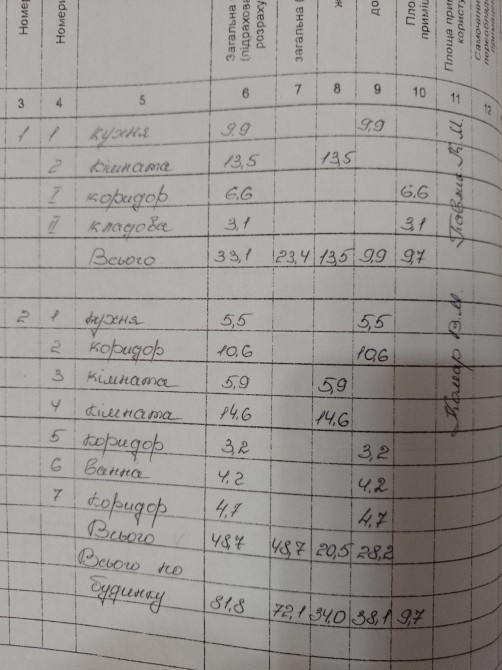 Номер
Номери
Загальна
(підрахова
розраху
загальна (
ж
до
Пло
приміщ
Площа при
користу
Самочинн
3 4 5 6 7 8 9 10 11 12
1 1 кухня 9,9 9,9
2 кімната 13,5 13,5
I коридор 6,6 6,6
II кладова 3,1 3,1
Всього 33,1 23,4 13,5 9,9 9,7
2 1 кухня 5,5 5,5
2 коридор 10,6 10,6
3 кімната 5,9 5,9
4 кімната 14,6 14,6
5 коридор 3,2 3,2
6 Ванна 4,2 4,2
7 коридор 4,7 4,7
Всього 48,7 48,7 20,5 28,2
Всього по
будинку 81,8 72,1 34,0 38,1 9,7
К.М.
Комар В.М.